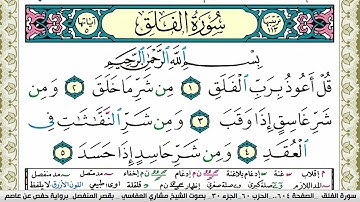 ترتيبها ١١٣
سُورَةُ الفَلَقِ
آياتها ٥
بِسْمِ اللَّهِ الرَّحْمَٰنِ الرَّحِيمِ
قُلْ أَعُوذُ بِرَبِّ الْفَلَقِ ١ مِن شَرِّ مَا خَلَقَ ٢ وَمِن
شَرِّ غَاسِقٍ إِذَا وَقَبَ ٣ وَمِن شَرِّ النَّفَّاثَاتِ فِي
الْعُقَدِ ٤ وَمِن شَرِّ حَاسِدٍ إِذَا حَسَدَ ٥
سورة الفلق - الصفحة ٦٠٤ - الحزب ٦٠ - الجزء ٣٠ - بصوت الشيخ مشاري العفاسي - بقصر المنفصل - رواية حفص عن عاصم